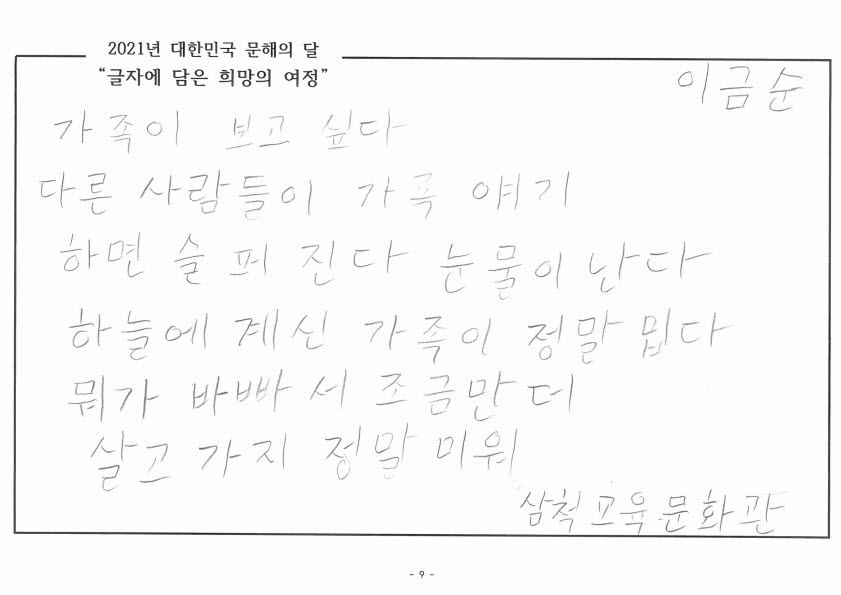 2021년 대한민국 문해의 달
“글자에 담은 희망의 여정”
이금순
가족이 보고 싶다
다른 사람들이 가족 얘기
하면 슬퍼 진다 눈물이 난다
하늘에 계신 가족이 정말 밉다
뭐가 바빠서 조금만 더
살고 가지 정말 미워
삼척교육문화관
- 9 -